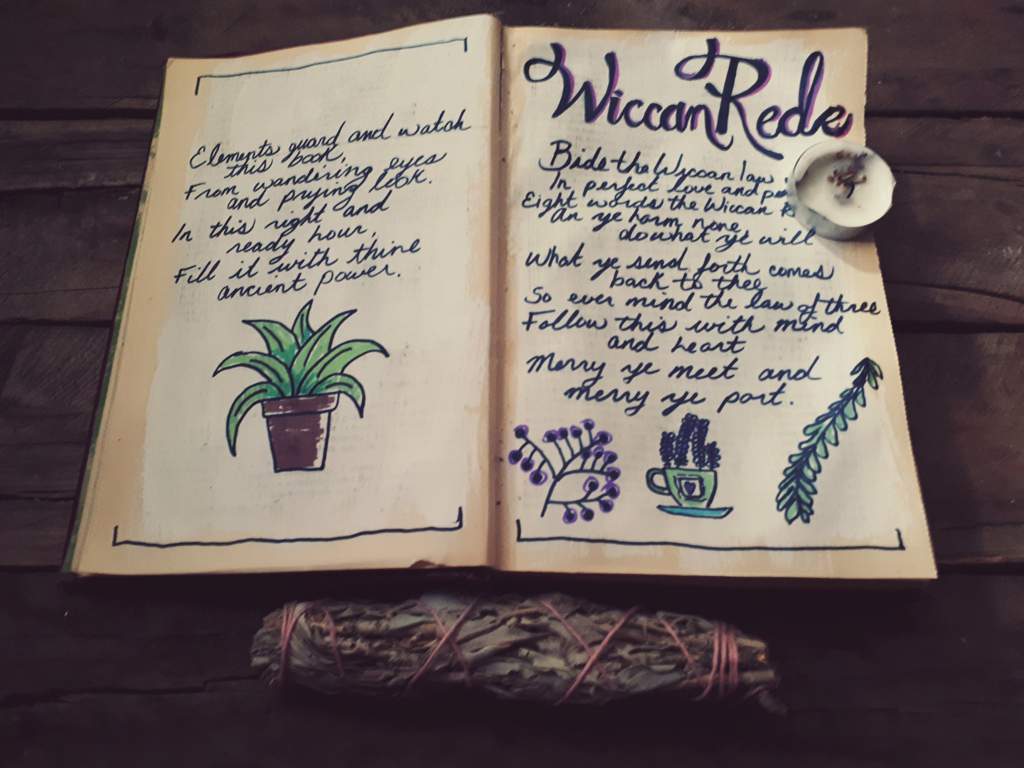 Elements guard and watch
this book,
From wandiring eyes
and prying look.
In this right and
ready hour,
Fill it with thine
ancient power.
Wiccan Rede
Bide the Wiccan law
In perfect love and
Eight words the Wiccan
An ye harm none
do what ye will
What ye send forth comes
back to thee
So ever mind the law of three
Follow this with mind
and heart
Merry ye meet and
merry ye part.